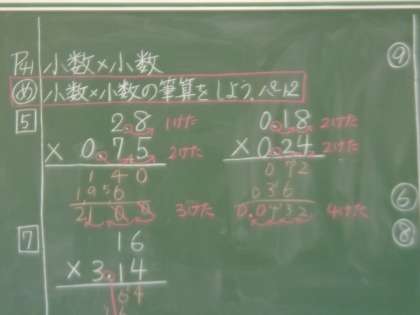 小数×小数
⑨
め 小数×小数の筆算をしよう。パート2
5
2.8 1けた
×0.75 2けた
140
196
2.100 3けた
0.18 2けた
×0.24 2けた
072
036
0.0432 4けた
⑥
7
16
×3.14
64
⑧